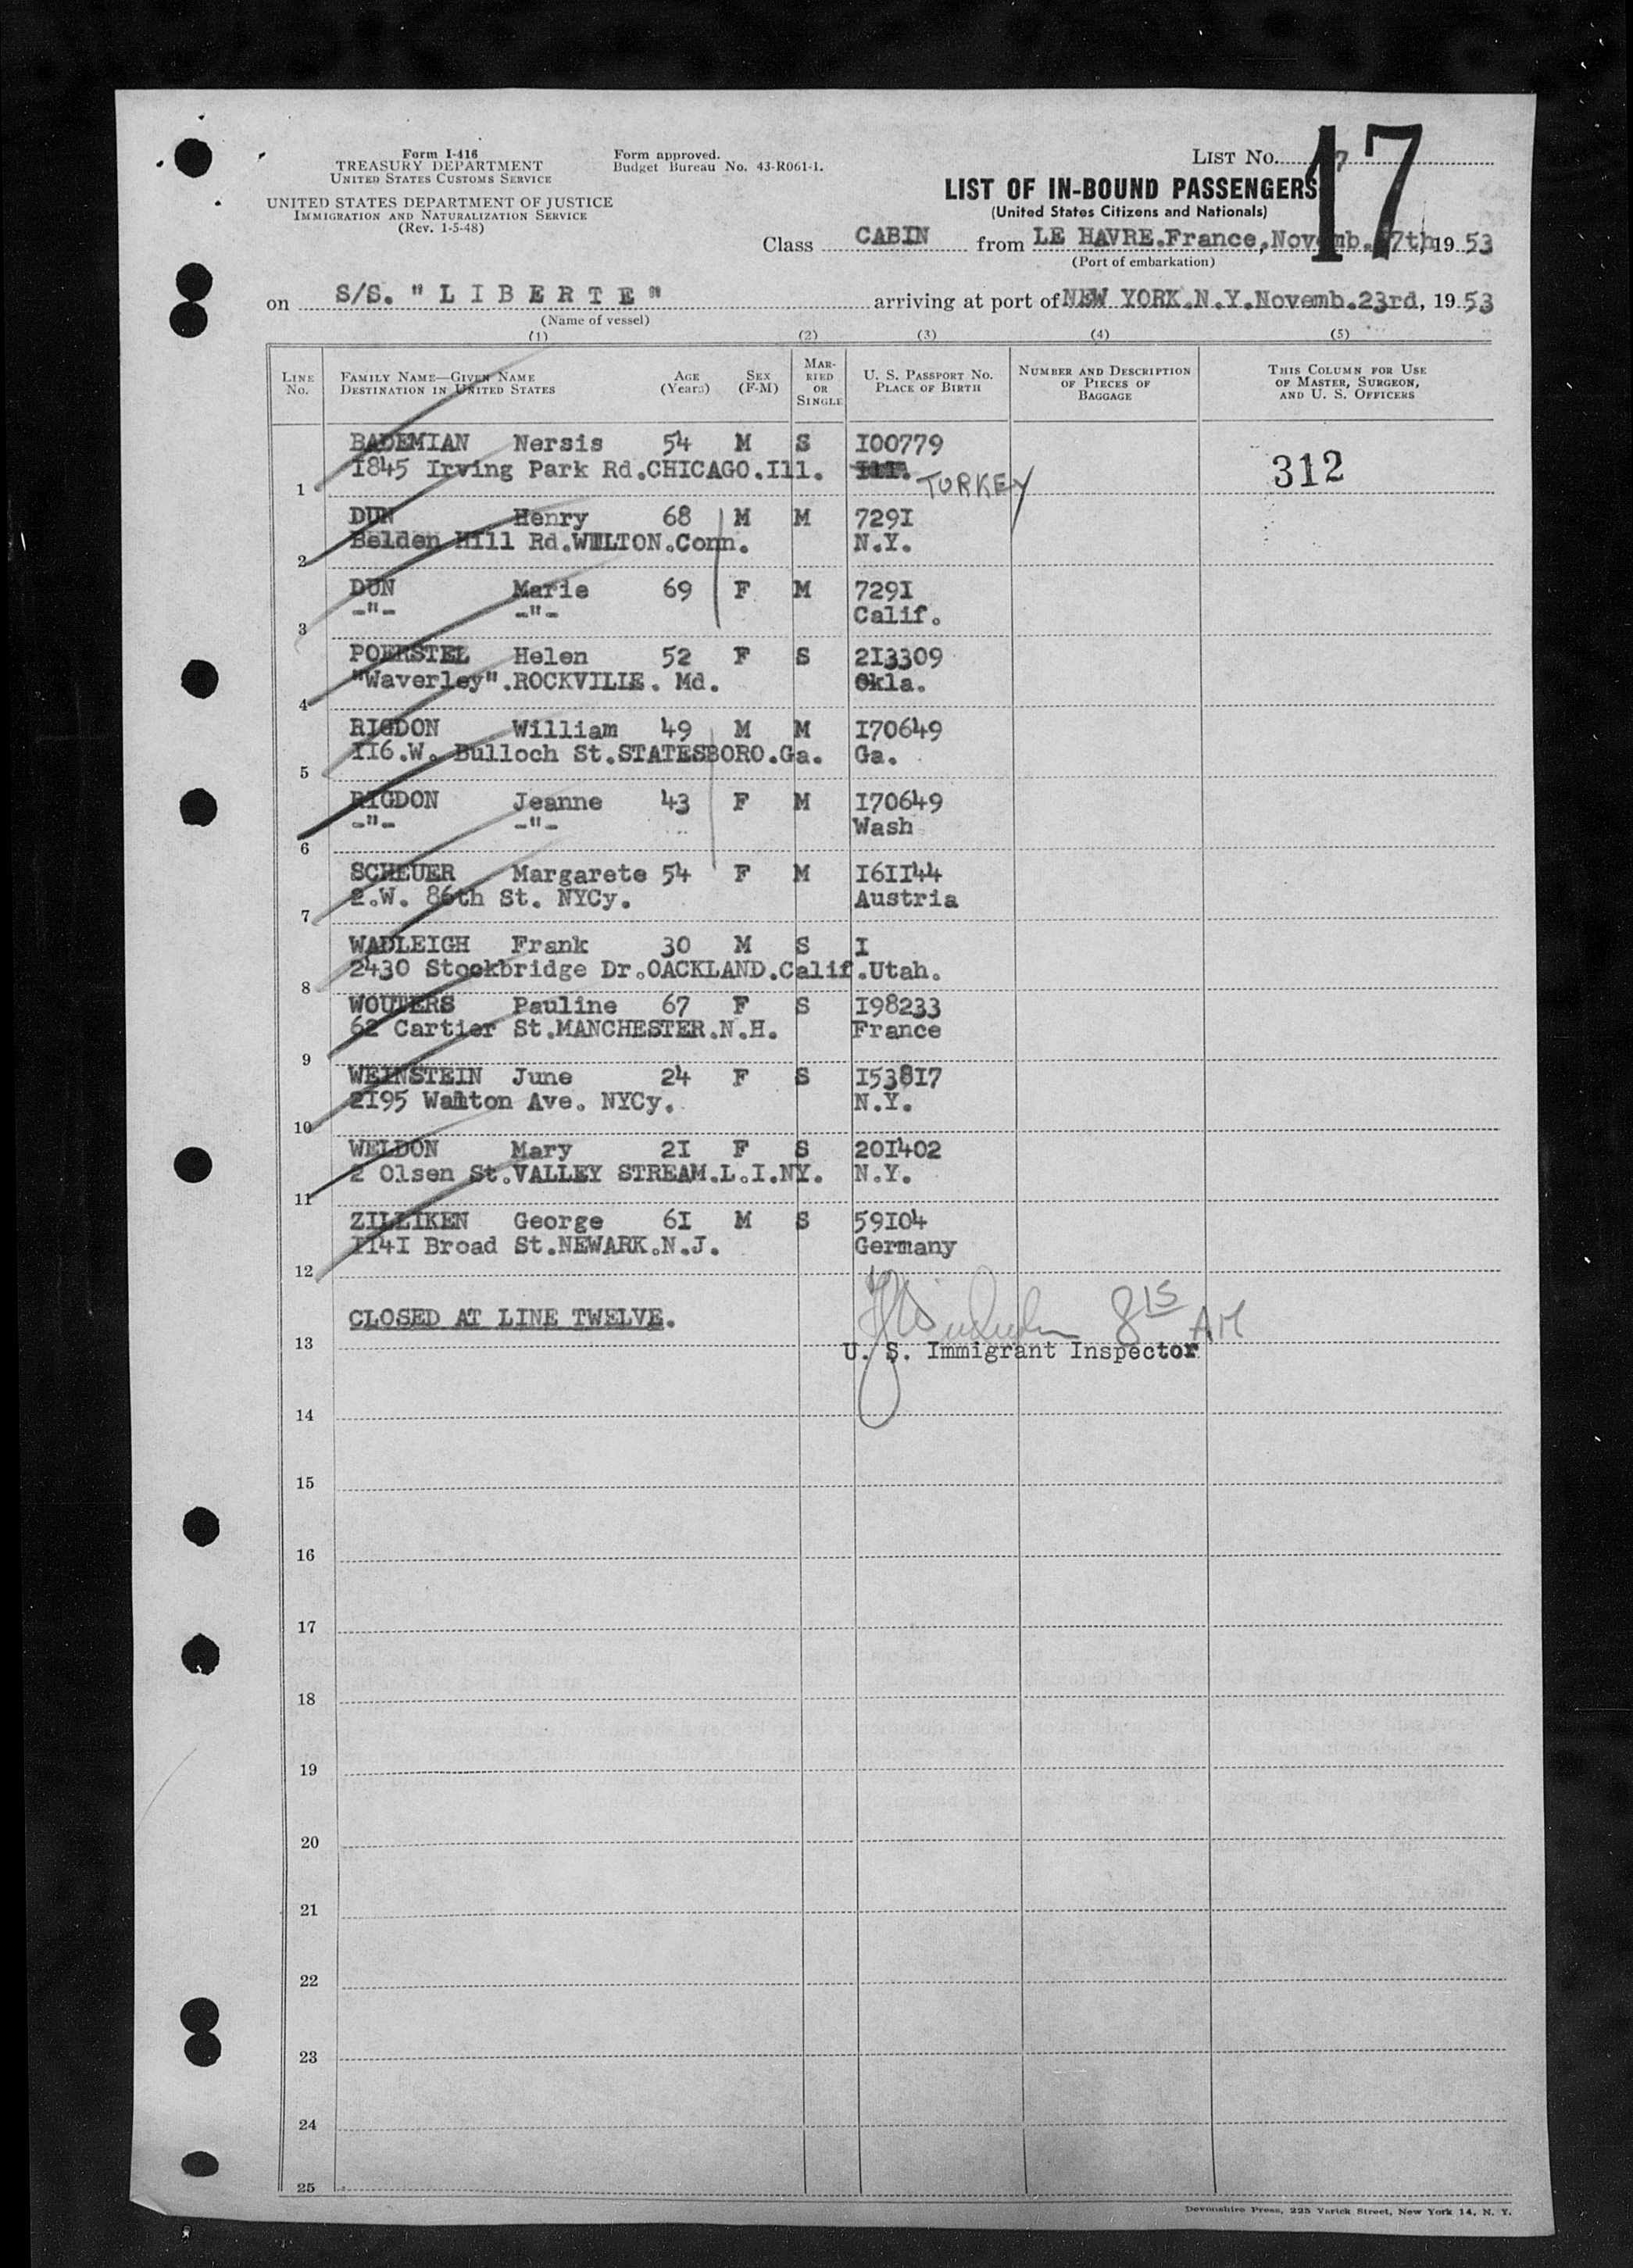 Form I-416
TREASURY DEPARTMENT
UNITED STATES CUSTOMS SERVICE
UNITED STATES DEPARTMENT OF JUSTICE
IMMIGRATION AND NATURALIZATION SERVICE
(Rev. 1-5-48)
Form approved.
Budget Bureau No. 43-R061-1.
LIST No. 17
LIST OF IN-BOUND PASSENGERS
(United States Citizens and Nationals)
Class CABIN from LE HAVRE.France,Novemb. 7th, 19 53
(Port of embarkation)
on S/S. "LIBERTE" arriving at port of NEW YORK.N.Y.Novemb.23rd, 19 53
(Name of vessel)
(1) (2) (3) (4) (5)
LINE No. FAMILY NAME—GIVEN NAME DESTINATION IN UNITED STATES AGE (Years) SEX (F-M) MARRIED OR SINGLE U. S. PASSPORT No. PLACE OF BIRTH NUMBER AND DESCRIPTION OF PIECES OF BAGGAGE THIS COLUMN FOR USE OF MASTER, SURGEON, AND U. S. OFFICERS
BADEMIAN Nersis 54 M S I00779
1 I845 Irving Park Rd.CHICAGO.Ill. Ill. TURKEY 312
DUN Henry 68 M M 729I
2 Belden Hill Rd.WILTON.Conn. N.Y.
DUN Marie 69 F M 729I
3 -"- -"- Calif.
POERSTEL Helen 52 F S 2I3309
4 "Waverley".ROCKVILLE. Md. Okla.
RIGDON William 49 M M I70649
5 II6.W. Bulloch St.STATESBORO.Ga. Ga.
RIGDON Jeanne 43 F M I70649
6 -"- -"- Wash
SCHEUER Margarete 54 F M I6II44
7 2.W. 86th St. NYCy. Austria
WADLEIGH Frank 30 M S I
8 2430 Stockbridge Dr.OACKLAND.Calif.Utah.
WOUTERS Pauline 67 F S I98233
9 62 Cartier St.MANCHESTER.N.H. France
WEINSTEIN June 24 F S I538I7
10 2I95 Walton Ave. NYCy. N.Y.
WELDON Mary 2I F S 20I402
11 2 Olsen St.VALLEY STREAM.L.I.NY. N.Y.
ZILLIKEN George 6I M S 59I04
12 II4I Broad St.NEWARK.N.J. Germany
CLOSED AT LINE TWELVE. 8 15 AM
13 U. S. Immigrant Inspector
14
15
16
17
18
19
20
21
22
23
24
25
Devonshire Press, 225 Varick Street, New York 14, N. Y.